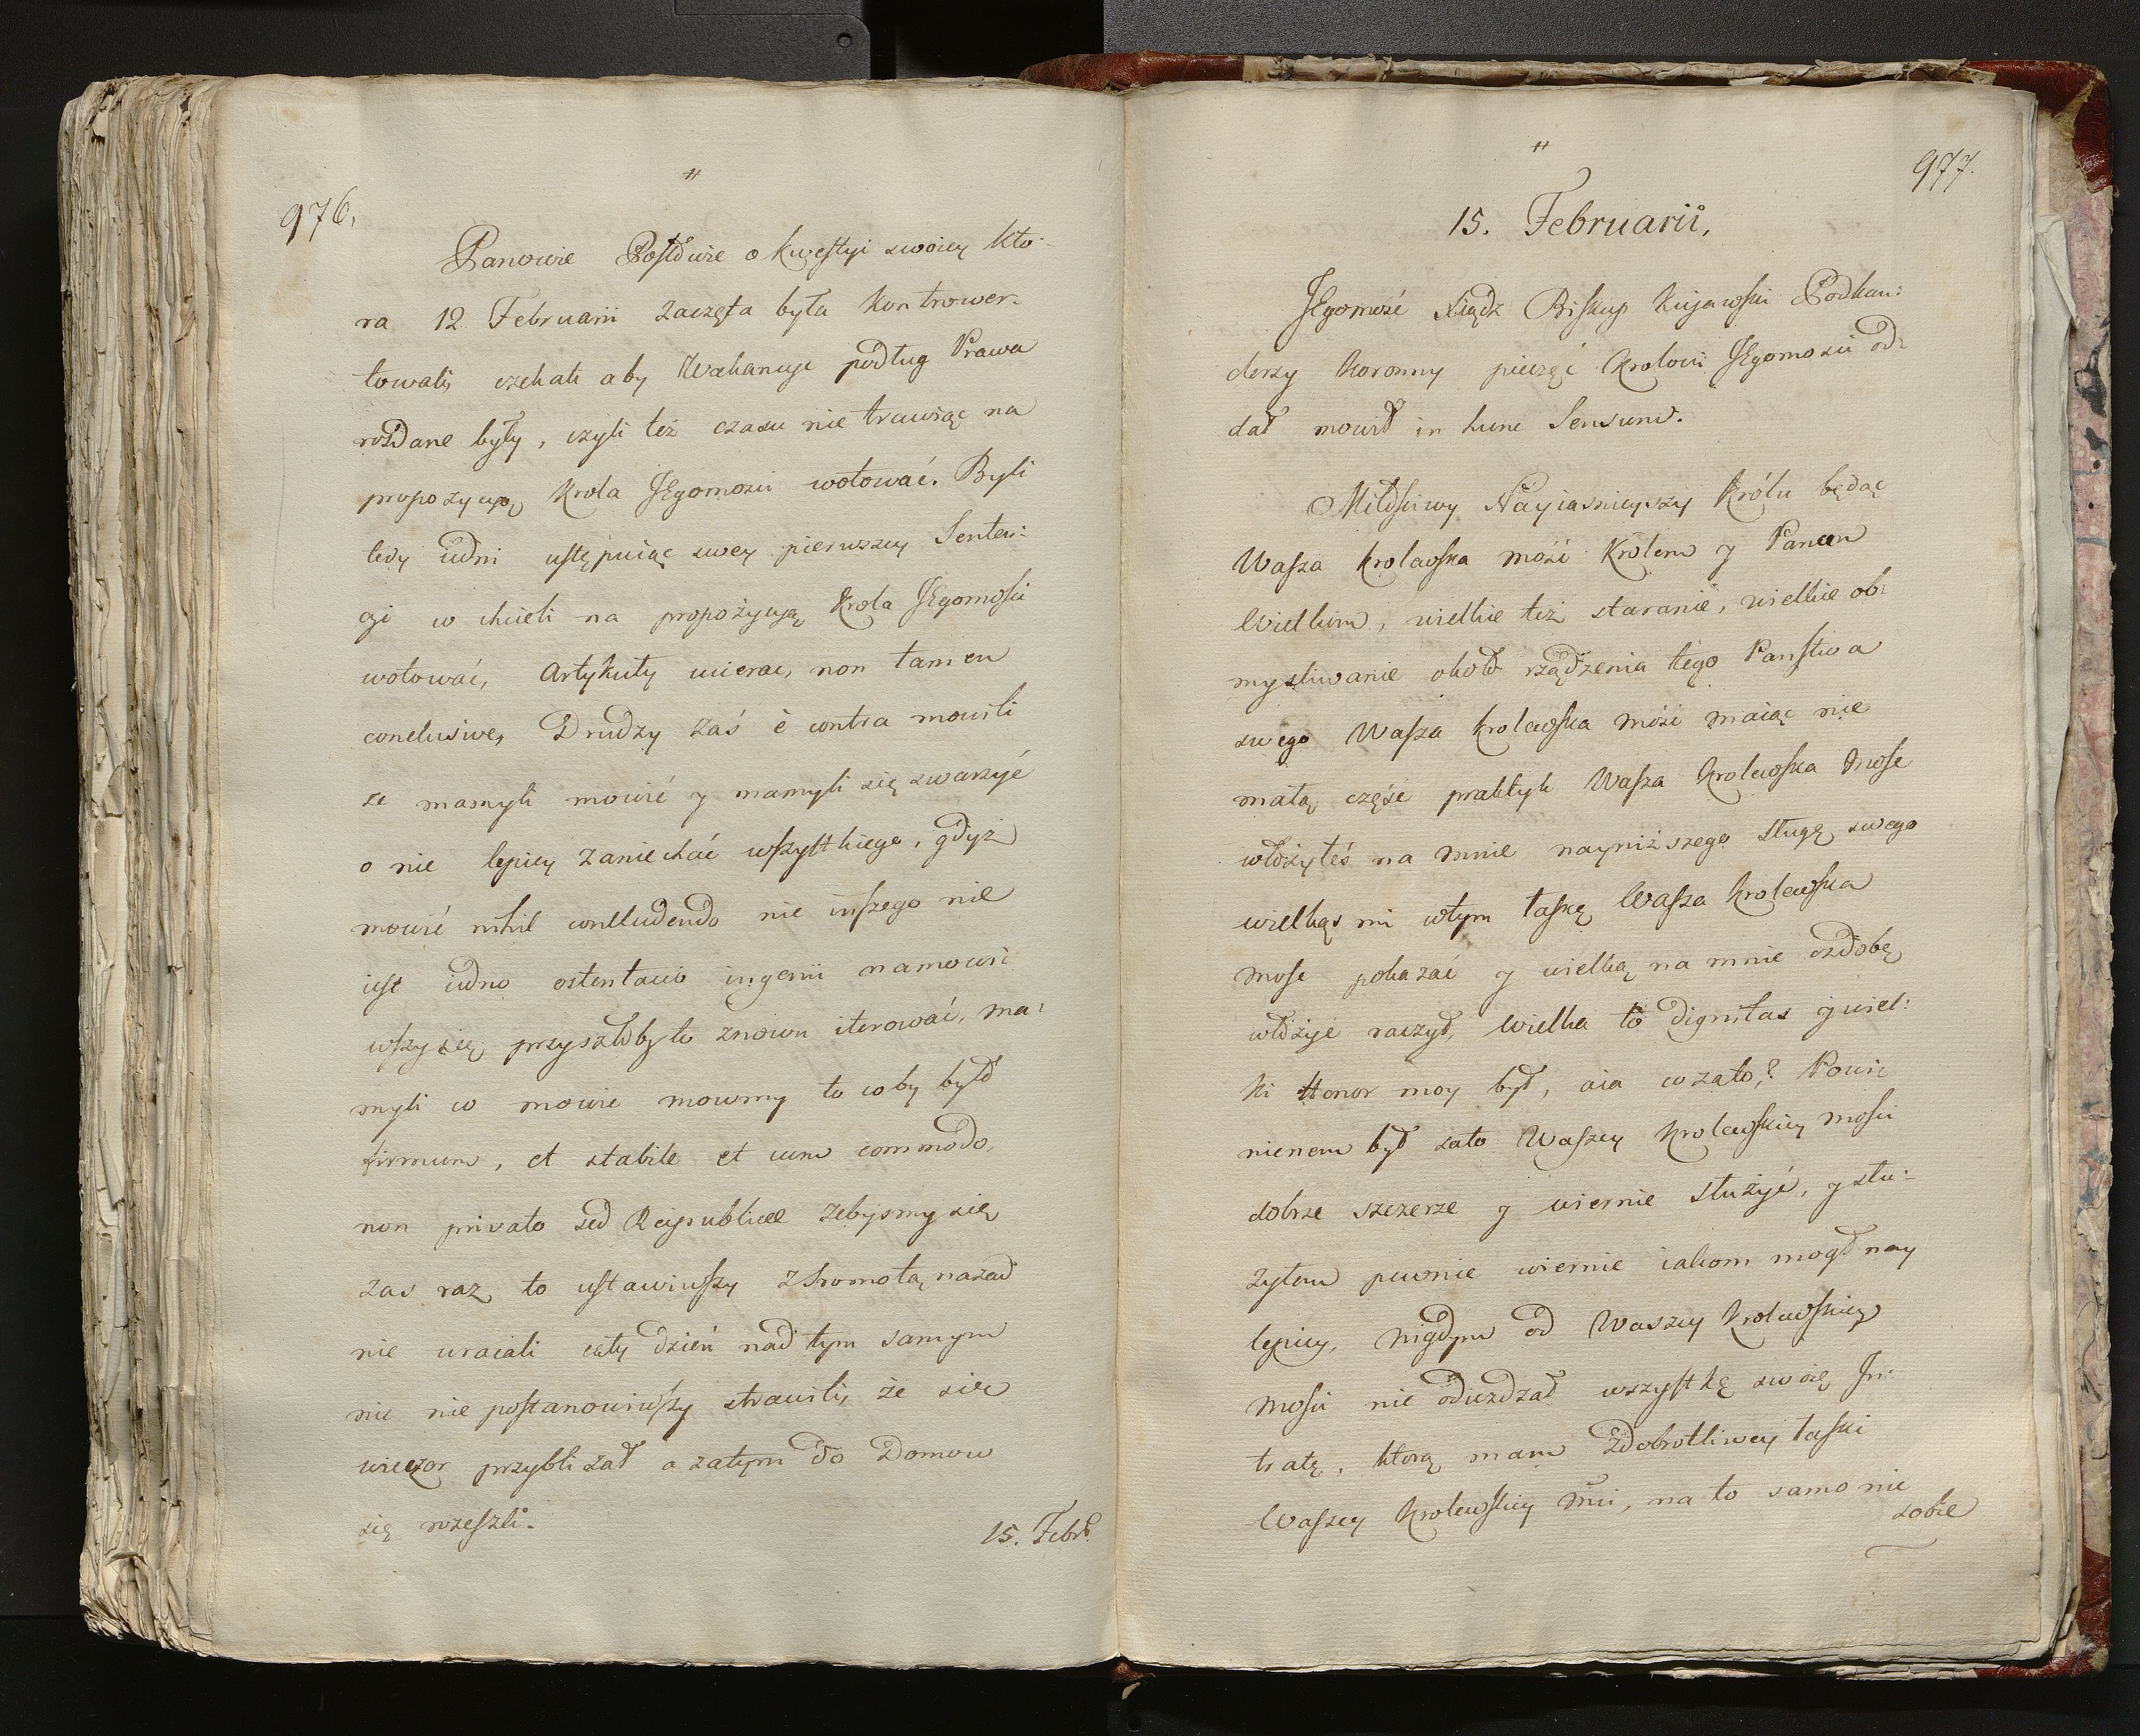 976.
Panowie Posłowie o kwestyi swoiey kto-
ra 12 Februarii zaczęta była kontrower-
towali, czekali aby Wachancye podług Prawa
rozdane były, czyli też czasu nie trawiąc na
propozycyą Krola JEgomosci wotować. Byli
tedy iedni ustępuiąc swey pierwszey Senten:
cyi w chcieli na propozycyą Krola JEgomosci
wotować, Artykuły
conclusive, Drudzy zaś è contra mowili
że mamyli mowić y mamyli się swarzyć
o nie lepiey zaniechać wszystkiego, gdyż
mowić nihil concludendo nie inszego nie
iest iedno ostentatio ingenii namowi:
wszy się przyszłoby to znowu iterować, ma:
myli co mowić mowmy to coby było
firmum, et stabile et cum commodo,
non privato sed Reipublicae żebysmy się
zas raz to ustawiwszy z sromotą nazad
nie wracali cały dzień nad tym samym
nic nie postanowiwszy strawili, że się
wieczor przybliżał a zatym do Domow
się rozeszli.
15. Febr.
977.
15. Februarii,
JEgomość Xiądz Biskup Kujawski Podkan:
clerzy Koronny pieczęć Krolowi JEgomosci od:
dał mowił in hunc Sensum.
Miłościwy Nayiasnieyszy Królu będąc
Wasza Krolewska mość Krolem y Panem
Wielkim, wielkie też staranie, wielkie ob:
mysliwanie około rządzenia tego Panstwa
swego Wasza Krolewska mość maiąc nie
małą część praktyk Wasza Krolewska Mość
włożyłeś na mnie nayniższego sługę swego
wielkąs mi wtym łaskę Wasza Krolewska
Mość pokazać y wielką na mnie ozdobę
włożyć raczył, wielka to dignitas y wiel:
ki Honor moy był, aia co zato? Powi:
nienem był zato Waszey Krolewskiey Mości
dobrze szczerze y wiernie służyć, y słu-
żyłem pewnie wiernie iakom mogł nay
lepiey, nigdym od Waszey Krolewskiey
Mości nie odieżdżał wszystkę swoię In:
tratę, ktorą mam z dobrotliwey łaski
Waszey Krolewskiey Mci, na to samo nie
sobie